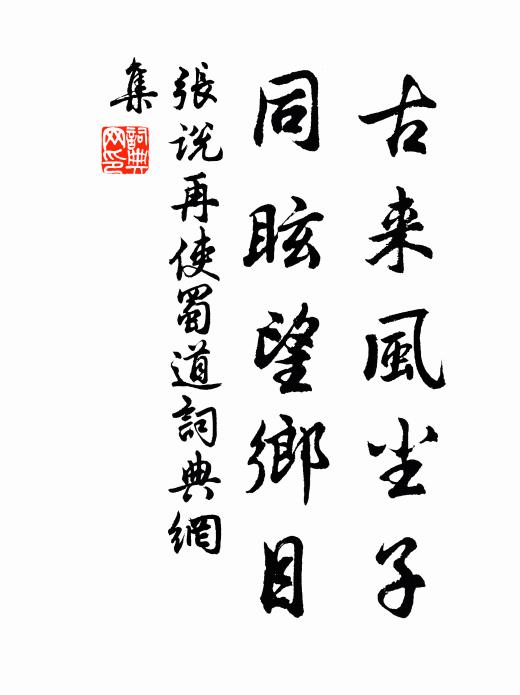 古来風尘子
同眩望鄉目
張說再使蜀道詞典網
集
詞典
网印